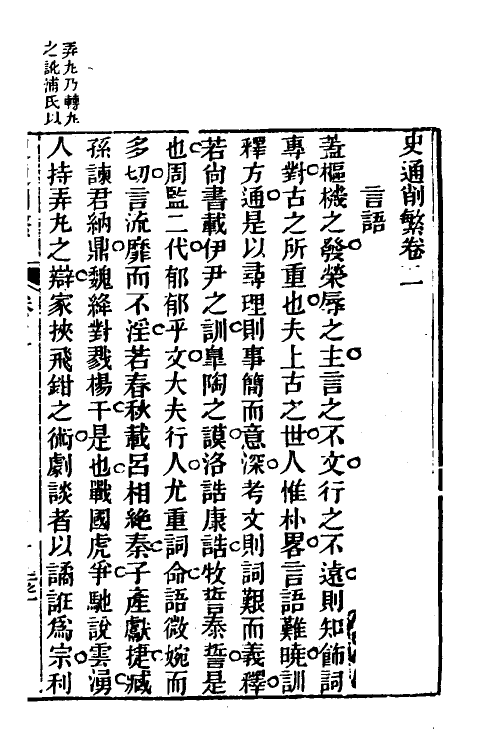 史通削繁卷二
言語
蓋樞機之發榮辱之主言之不文行之不遠則知飾詞
專對古之所重也夫上古之世人惟朴畧言語難曉訓
釋方通是以尋理則事簡而意深考文則詞艱而義釋
若尙書載伊尹之訓臯陶之謨洛誥康誥牧誓泰誓是
也周監二代郁郁乎文大夫行人尤重詞命語微婉而
多切言流靡而不淫若春秋載呂相絶秦子產獻捷臧
孫諫君納鼎魏絳對戮楊干是也戰國虎爭馳說雲湧
人持弄丸之辯家挾飛鉗之術劇談者以譎誑爲宗利
弄丸乃轉丸
之訛浦氏以